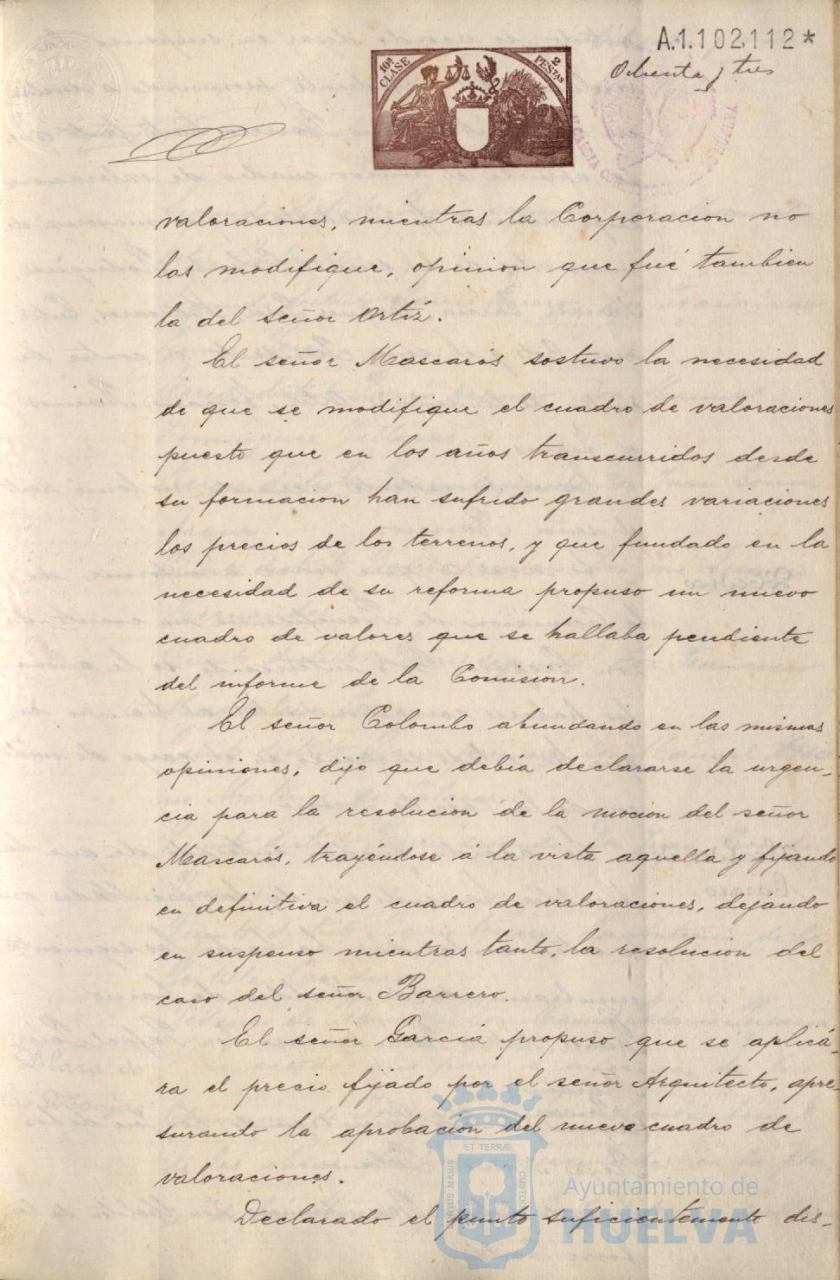 A.1.102,112*
Ochenta y tres
10ª CLASE
2 PESTAS
valoraciones, mientras la Corporacion no
las modifique, opinion que fué tambien
la del señor Ortiz.
El señor Mascarós sostuvo la necesidad
de que se modifique el cuadro de valoraciones
puesto que en los años transcurridos desde
su formacion han sufrido grandes variaciones
los precios de los terrenos, y que fundado en la
necesidad de su reforma propuso un nuevo
cuadro de valores que se hallaba pendiente
del informe de la Comision.
El señor Colombo abundando en las mismas
opiniones, dijo que debía declararse la urgen-
cia para la resolucion de la mocion del señor
Mascarós, trayéndose á la vista aquella y fijando
en definitiva el cuadro de valoraciones, dejando
en suspenso mientras tanto, la resolucion del
caso del señor Barrero.
El señor García propuso que se aplicá-
ra el precio fijado por el señor Arquitecto, apre-
surando la aprobacion del nuevo cuadro de
valoraciones.
Declarado el punto suficientemente dis-
ET TERRÆ
PORTUS MARIS
CUSTODIA
Ayuntamiento de
HUELVA